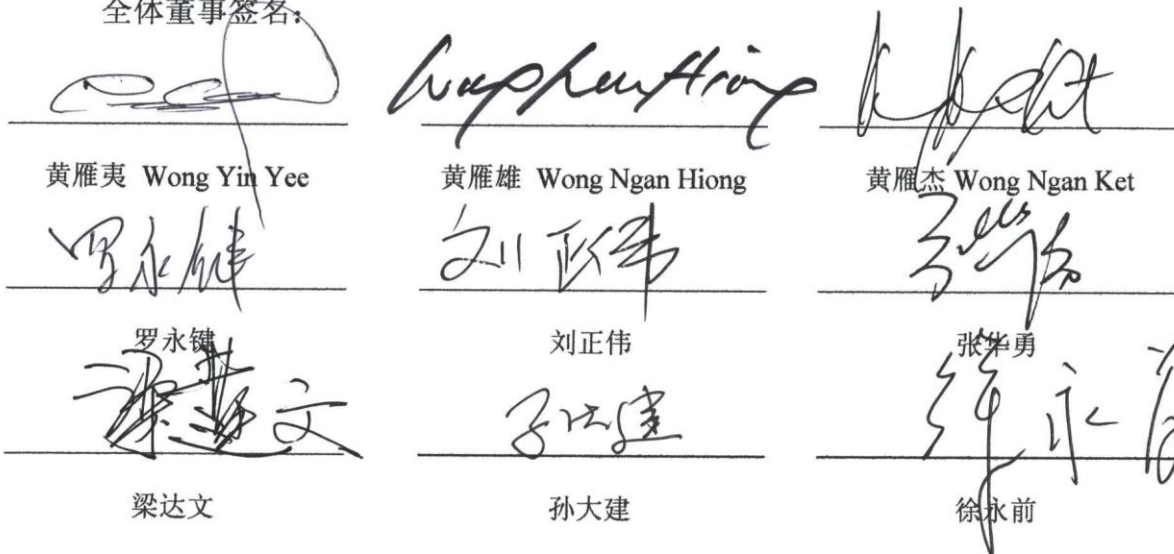 全体董事签名：
黄雁夷 Wong Yin Yee 黄雁雄 Wong Ngan Hiong 黄雁杰 Wong Ngan Ket
罗永键 刘正伟
罗永键 刘正伟 张华勇
梁达文 孙大建 徐永前